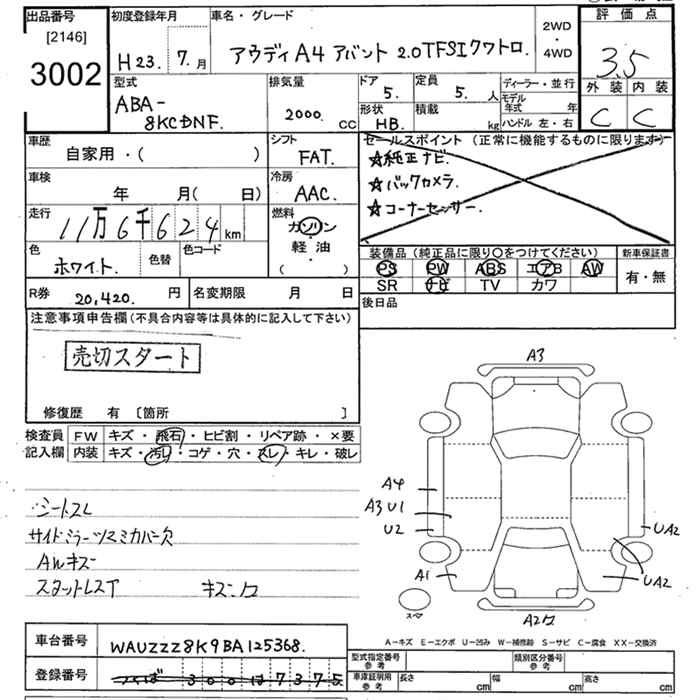 出品番号
[2146]
3002
初度登録年月
H23. 7. 月
車名・グレード
アウディ A4 アバント 2.0TFSIクワトロ.
2WD
・
4WD
評価点
3.5
外装 内装
C C
型式
ABA-
8KCDNF.
排気量
2000. CC
ドア
5.
定員
5. 人
形状
HB.
積載
kg
ディーラー・並行
モデル
年式 年
ハンドル 左・右
車歴
自家用・( )
シフト
FAT.
セールスポイント (正常に機能するものに限ります)
☆純正ナビ.
☆バックカメラ.
☆コーナーセンサー.
車検
年 月( 日)
冷房
AAC.
走行
11万6千624 km
燃料
ガソリン
軽油
( )
色
ホワイト.
色替
色コード
装備品 (純正品に限り○をつけてください)
PS PW ABS エアB AW
SR ナビ TV カワ
新車保証書
有・無
R券 20,420. 円
名変期限 月 日
後日品
注意事項申告欄(不具合内容等は具体的に記入して下さい)
売切スタート
修復歴 有 〔箇所 〕
検査員
記入欄
FW キズ・飛石・ヒビ割・リペア跡・×要
内装 キズ・汚レ・コゲ・穴・スレ・キレ・破レ
シートスレ
サイドミラーツマミカバー欠
AWキズ
スタットレスT キズ・凹
A3
A4
A3 U1
U2
A1
UA2
UA2
A2凹
スペア
A-キズ E-エクボ U-凹み W-補修跡 S-サビ C-腐食 XX-交換済
車台番号
WAUZZZ8K9BA125368.
登録番号
つくば 300 は 7375
型式指定番号
参考
類別区分番号
参考
車庫証明用
参考
長さ cm
幅 cm
高さ cm